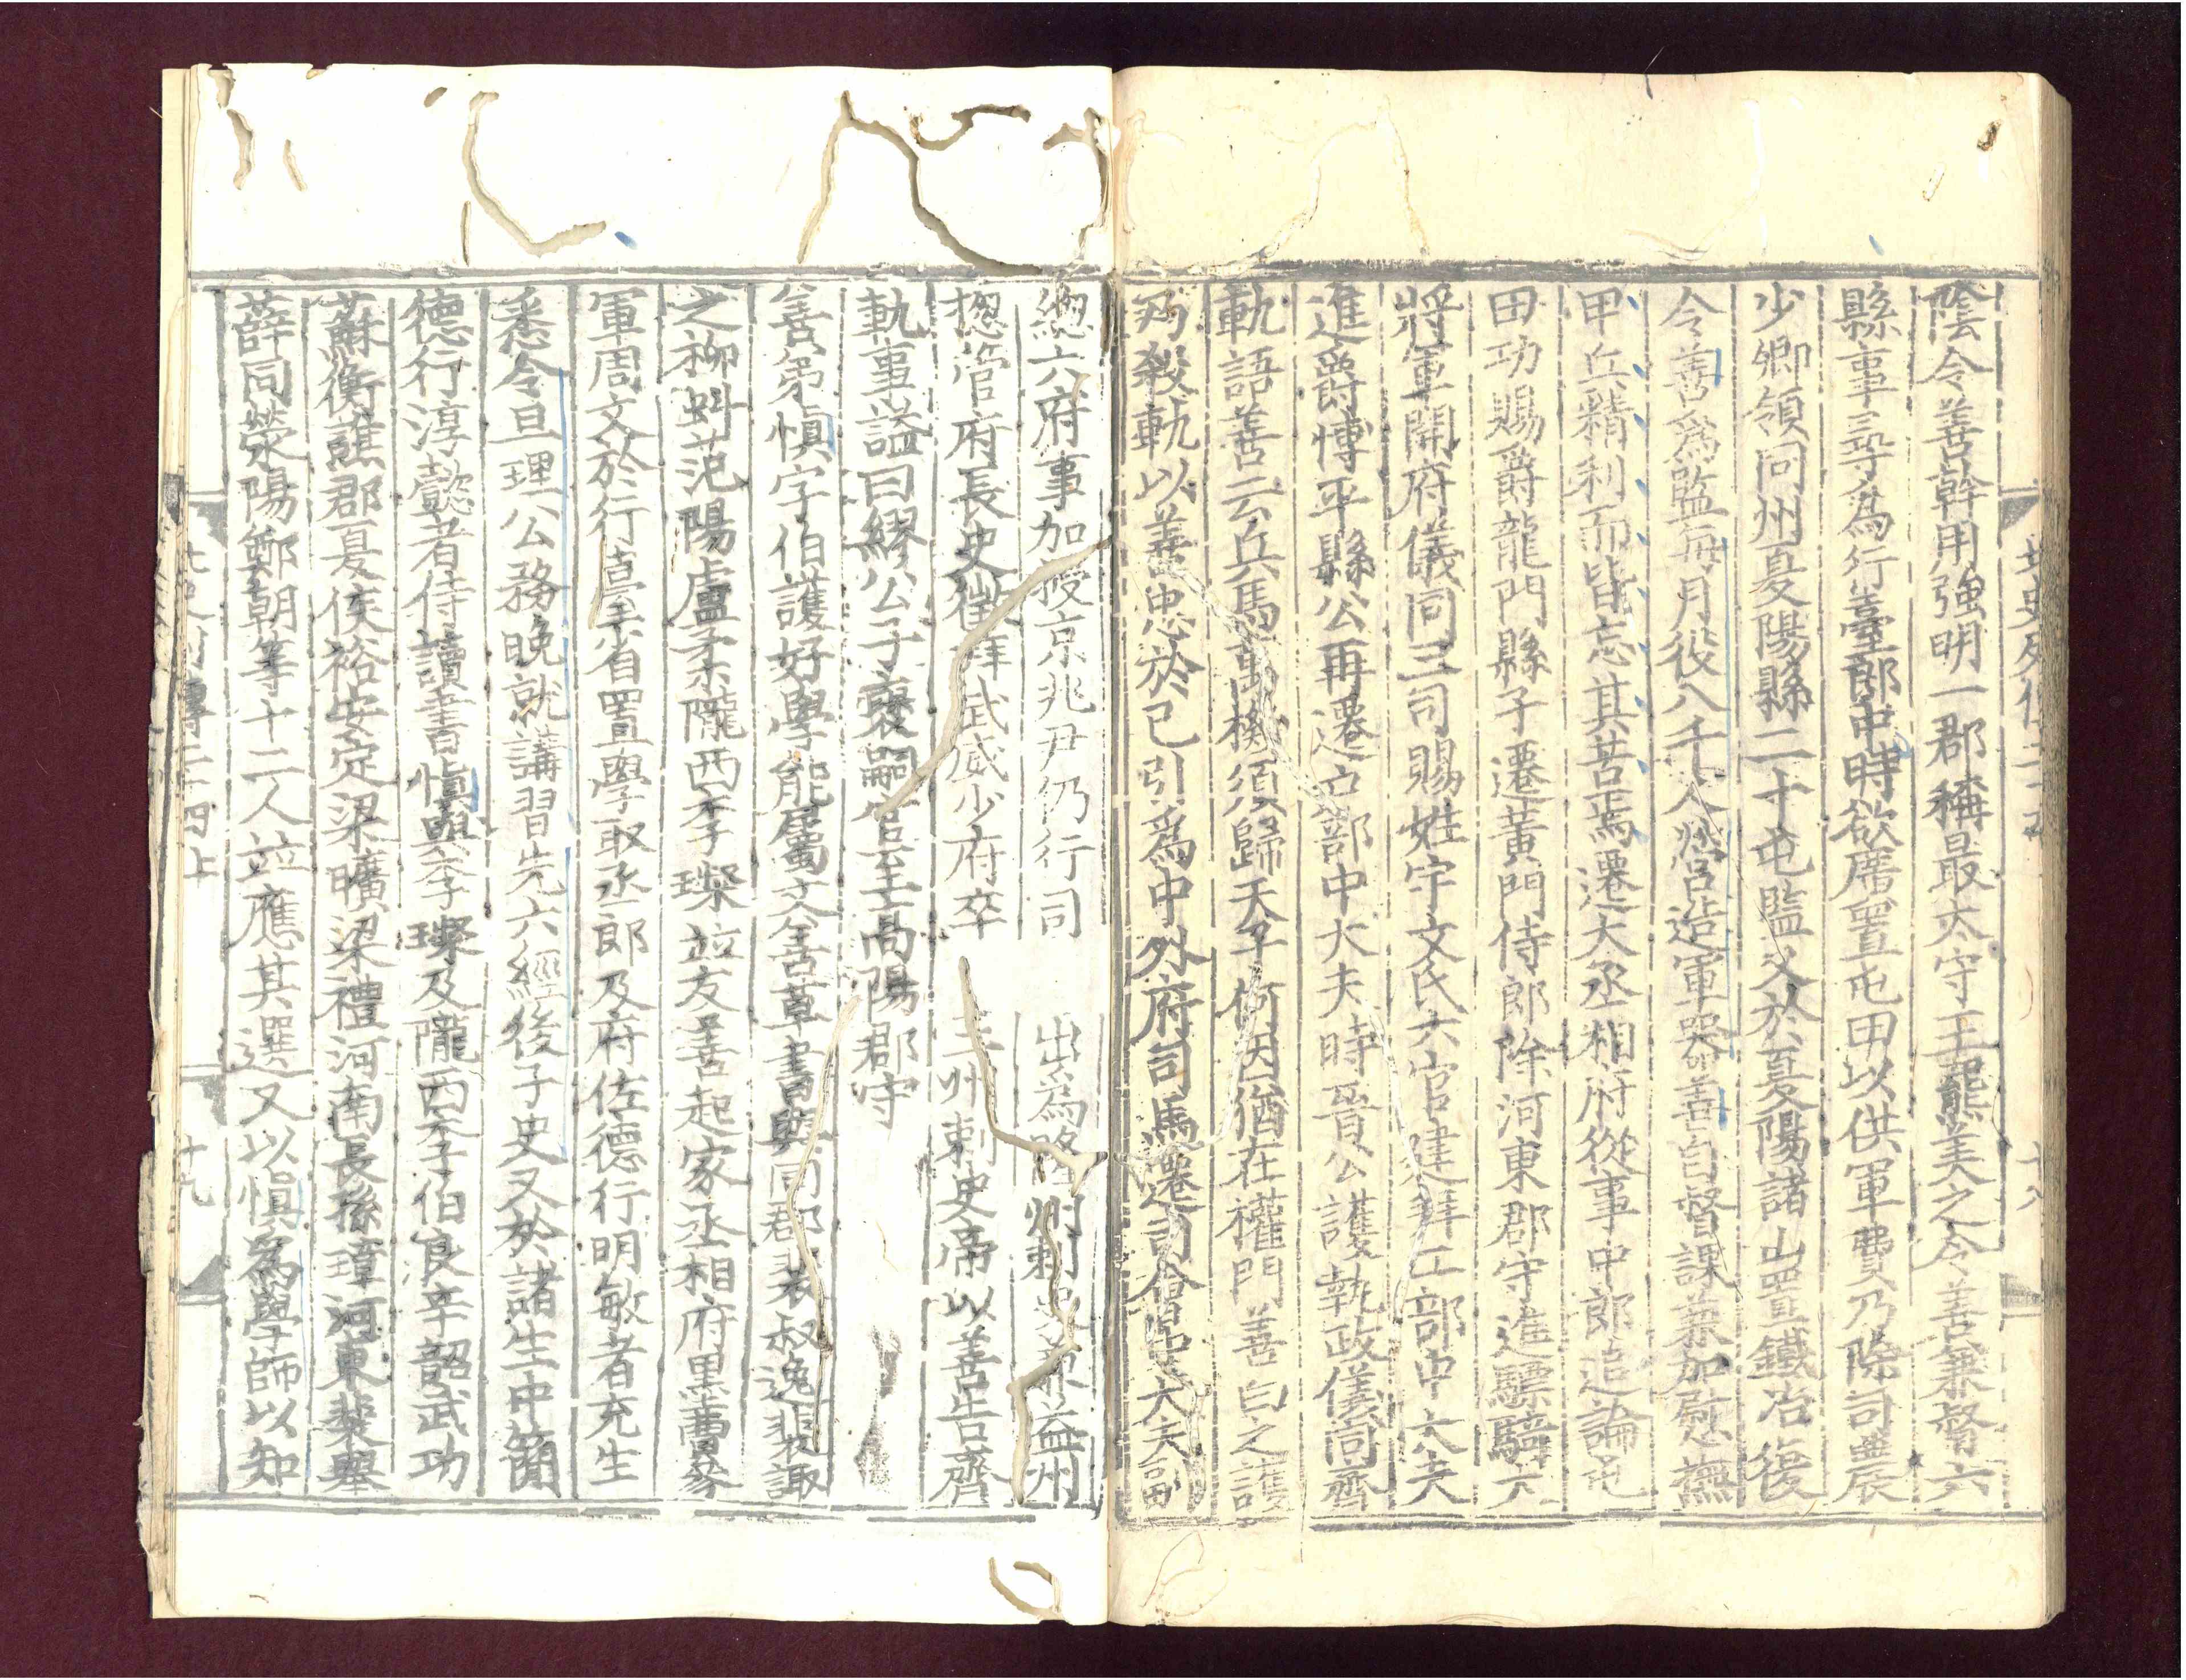 陰令善幹用強明一郡稱最太守王羆美之令善兼督六
縣事尋爲行臺郎中時欲廣置屯田以供軍費乃除司農
少卿領同州夏陽縣二十屯監又於夏陽諸山置鐵冶復
令善爲監每月役八千人營造軍器善自督課兼加慰撫
甲兵精利而皆忘其苦焉遷大丞相府從事中郎追論屯
田功賜爵龍門縣子遷黃門侍郎除河東郡守進驃騎大
將軍開府儀同三司賜姓宇文氏六官建拜工部中大夫
進爵博平縣公再遷戶部中大夫時晉公護執政儀同齊
軌語善云兵馬萬機須歸天子何因猶在權門善白之護
殺軌以善忠於已引爲中外府司馬遷司會中大夫副
總六府事加授京兆尹仍行司 出爲隆州刺史兼益州
摠管府長史徵拜武威少府卒 三州刺史帝以善告齊
軌事諡曰繆公子裒嗣官至高陽郡守
善弟慎字伯護好學能屬文善草書與同郡裴叔逸裴諏
之柳虯范陽盧柔隴西李璨並友善起家丞相府墨曹參
軍周文於行臺省置學取丞郎及府佐德行明敏者充生
悉令旦理公務晚就講習先六經後子史又於諸生中簡
德行淳懿者侍讀書慎與李璨及隴西李伯良辛韶武功
蘇衡譙郡夏侯裕安定梁曠梁禮河南長孫璋河東裴舉
薛同滎陽鄭朝等十二人並應其選又以慎爲學師以知
傳二十四上 十九